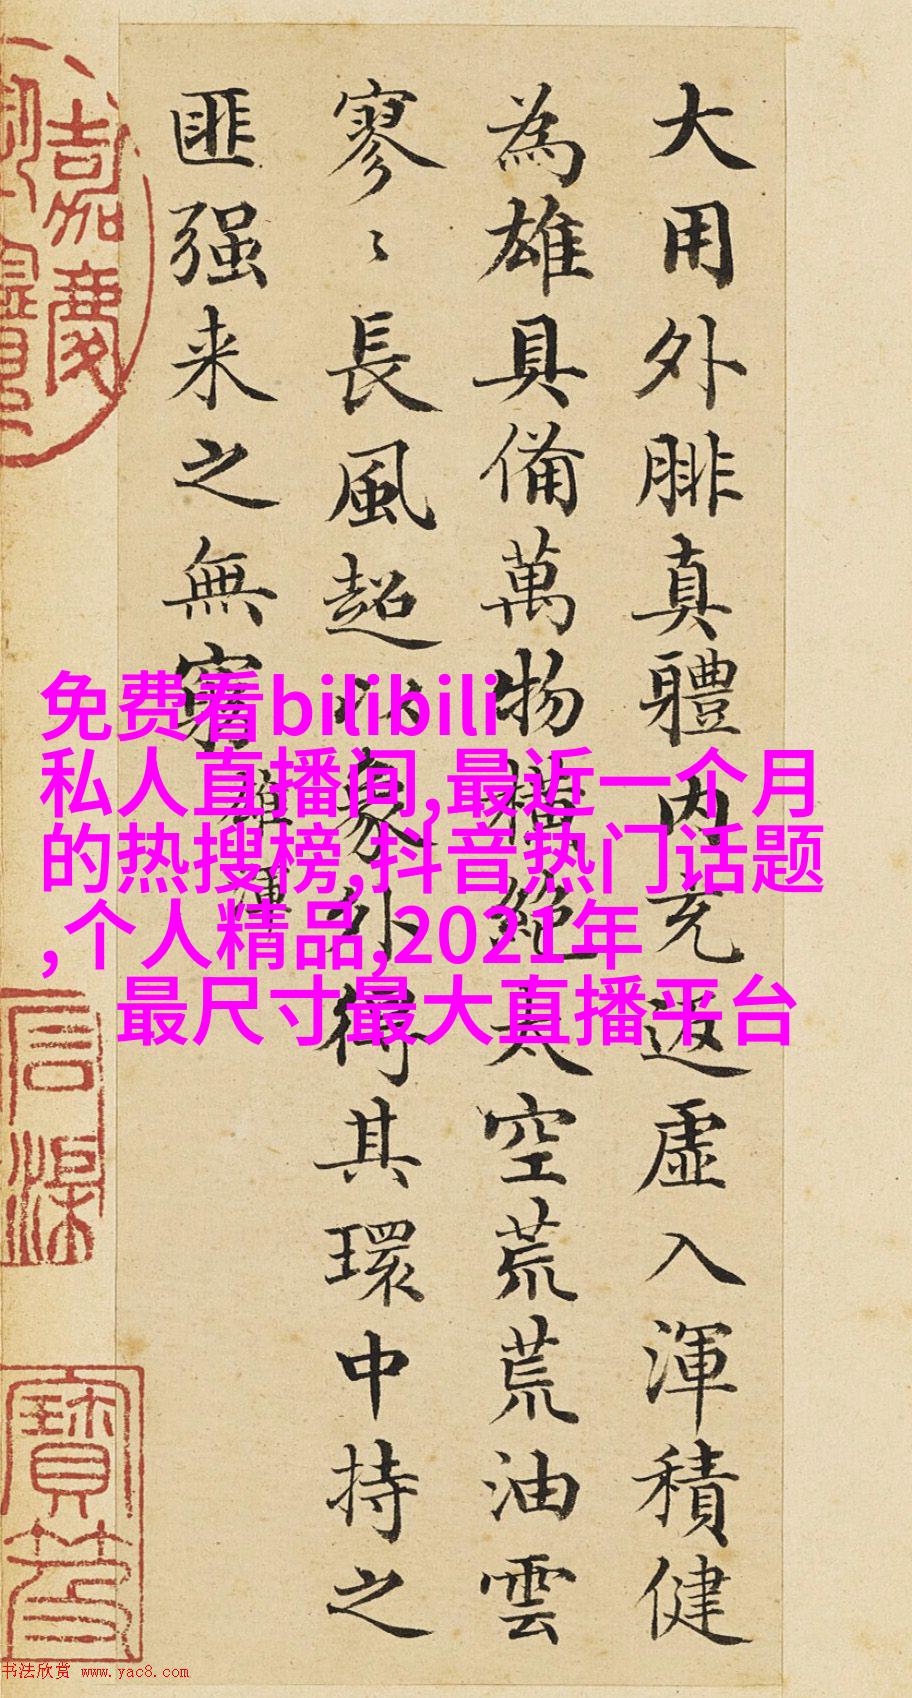 大用外腓真體内充返虛入渾積健
為雄具備萬物橫絕太空荒荒油雲
寥〻長風超以象外得其環中持之
匪强来之無窮
雄渾
嘉慶
免费看bilibili
私人直播间,最近一个月
的热搜榜,抖音热门话题
,个人精品,2021年
最尺寸最大直播平台
书法欣赏 www.yac8.com